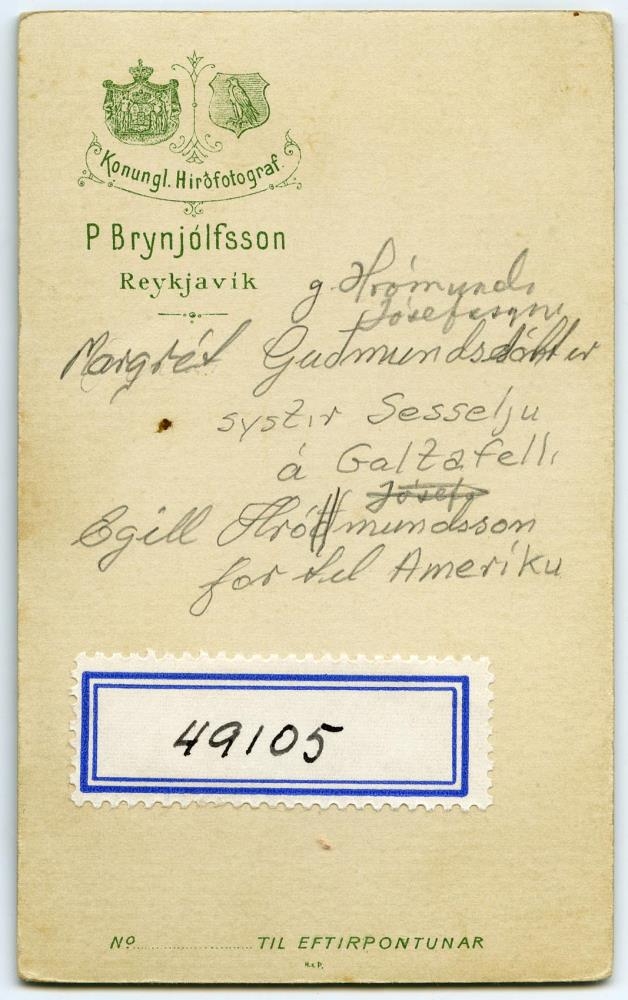 Konungl. Hirðfotograf.
P Brynjólfsson
Reykjavík
g. Hrómundi
Jósefssyni
Margrét Guðmundsdóttir
systir Sesselju
á Galtafelli
Jósefs
Egill Hrómundsson
for til Ameríku
49105
No TIL EFTIRPONTUNAR
H & P.